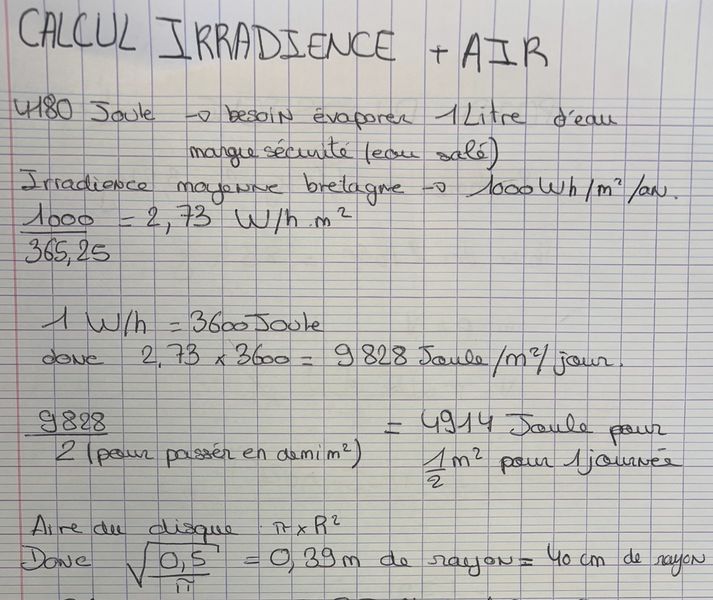 CALCUL IRRADIENCE + AIR
4180 Joule → besoin évaporer 1 Litre d'eau
marque sécurité (eau salé)
Irradience moyenne bretagne → 1000 Wh/m²/an.
1000 = 2,73 W/h.m²
365,25
1 W/h = 3600 Joule
donc 2,73 × 3600 = 9828 Joule/m²/jour.
9828 = 4914 Joule pour
2 (pour passér en demi m²) 1/2 m² pour 1 journée
Aire du disque π × R²
Donc √0,5/π = 0,39 m de rayon = 40 cm de rayon